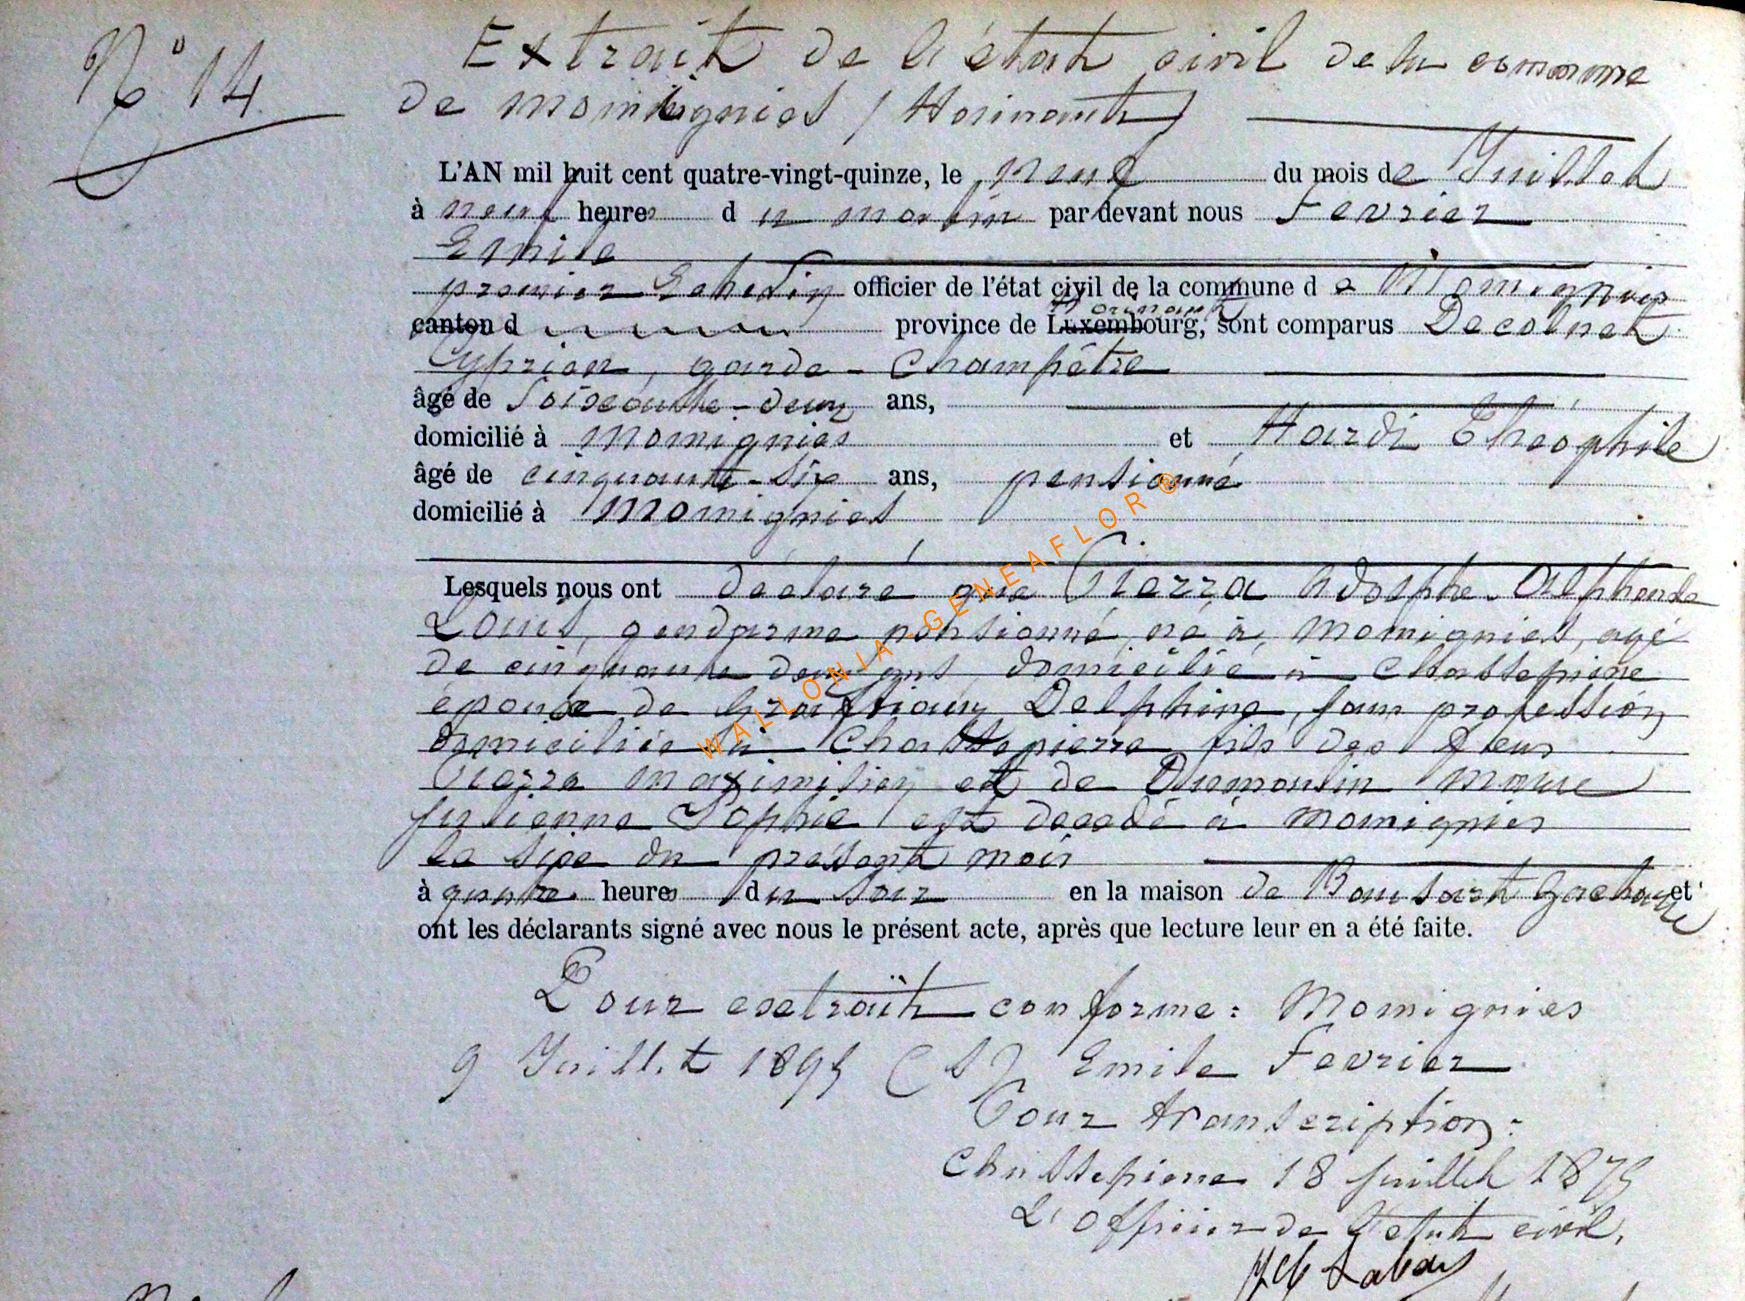 N° 14
Extrait de l'état civil de la commune
de Momignies (Hainaut)
L'AN mil huit cent quatre-vingt-quinze, le neuf du mois de Juillet
à neuf heures du matin par devant nous Fevrier
Emile
premier Echevin officier de l'état civil de la commune de Momignies
canton d province de Luxembourg, Hainaut sont comparus Decolnet
Cyprien, garde-Champêtre
âgé de Soixante-deux ans,
domicilié à Momignies et Hardi Théophile
âgé de cinquante-six ans, pensionné
domicilié à Momignies
Lesquels nous ont déclaré que Pierra Adolphe-Alphonse
Louis, gendarme pensionné, né à Momignies, agé
de cinquante deux ans, domicilié à Chassepierre
époux de Delphine, sans profession
domiciliée à Chassepierre fils des feus
Pierra Maximilien et de Dumoulin Marie
Julienne Sophie est décédé à Momignies
le six du présent mois
à quatre heures du soir en la maison de et
ont les déclarants signé avec nous le présent acte, après que lecture leur en a été faite.
Pour extrait conforme: Momignies
9 Juillet 1895 (S) Emile Fevrier
Pour transcription:
Chassepierre 18 juillet 1895
L'officier de l'état civil,
WALLONIA-GENEAFLOR ®